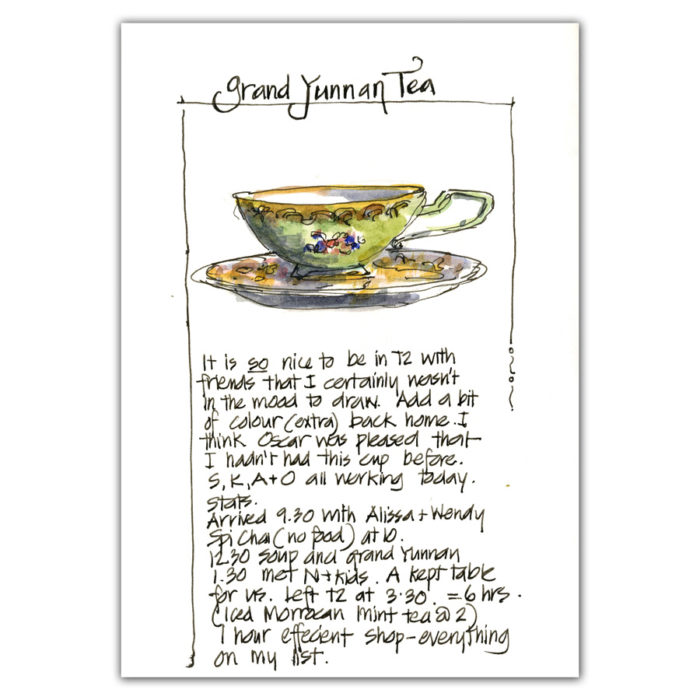 Grand Yunnan Tea
It is so nice to be in T2 with
friends that I certainly wasn't
in the mood to draw. Add a bit
of colour (extra) back home. I
think Oscar was pleased that
I hadn't had this cup before.
S, K, A+O all working today.
Stats.
Arrived 9.30 with Alissa + Wendy
Spi Chai (no food) at 10.
12.30 soup and grand Yunnan
1.30 met N+kids. A kept table
for us. Left T2 at 3.30. = 6 hrs.
(Iced Morrocan Mint tea @ 2)
1 hour effecient shop - everything
on my list.